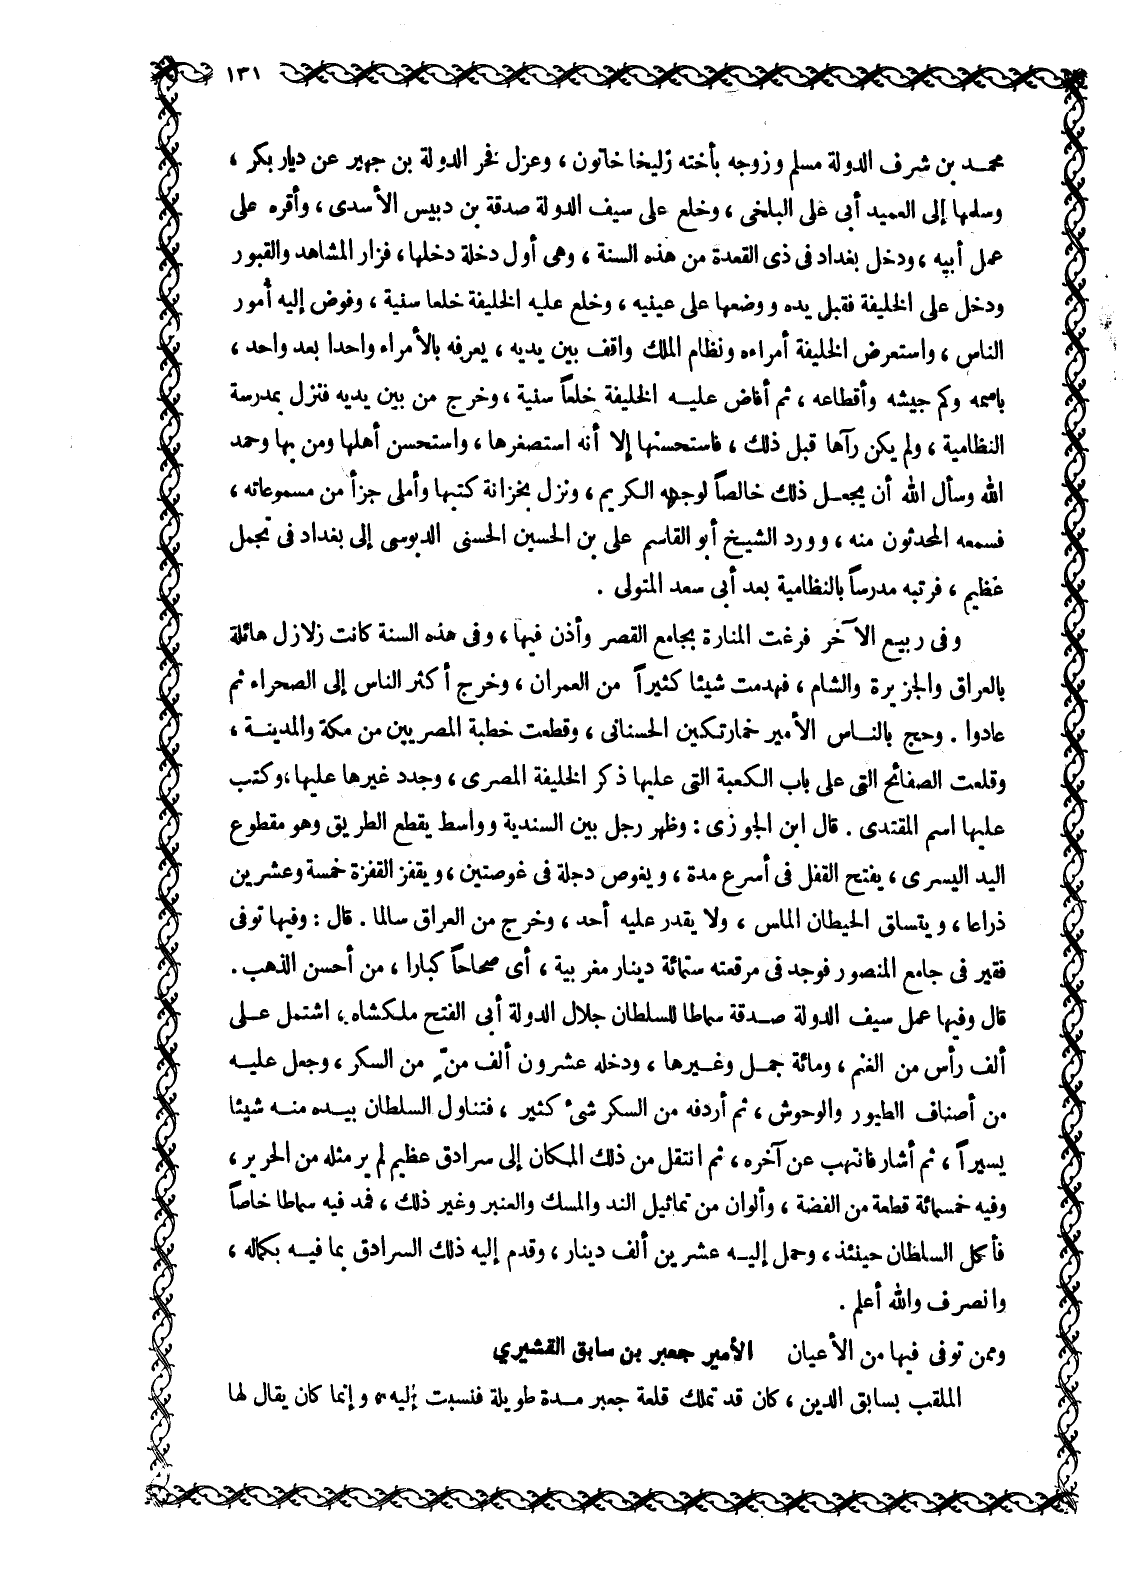 ١٣١
محمد بن شرف الدولة مسلم وزوجه بأخته زليخا خاتون ، وعزل فخر الدولة بن جهير عن ديار بكر ،
وسلمها إلى العميد أبى على البلخى ، وخلع على سيف الدولة صدقة بن دبيس الأسدى ، وأقره على
عمل أبيه ، ودخل بغداد فى ذى القعدة من هذه السنة ، وهى أول دخلة دخلها ، فزار المشاهد والقبور
ودخل على الخليفة فقبل يده ووضعها على عينيه ، وخلع عليه الخليفة خلعا سنية ، وفوض إليه أمور
الناس ، واستعرض الخليفة أمراءه ونظام الملك واقف بين يديه ، يعرفه بالأمراء واحدا بعد واحد ،
باسمه وكم جيشه وأقطاعه ، ثم أفاض عليه الخليفة خلعاً سنية ، وخرج من بين يديه فنزل بمدرسة
النظامية ، ولم يكن رآها قبل ذلك ، فاستحسنها إلا أنه استصغرها ، واستحسن أهلها ومن بها وحمد
الله وسأل الله أن يجعل ذلك خالصاً لوجهه الكريم ، ونزل بخزانة كتبها وأملى جزأ من مسموعاته ،
فسمعه المحدثون منه ، وورد الشيخ أبو القاسم على بن الحسين الحسنى الدبوسى إلى بغداد فى تجمل
عظيم ، فرتبه مدرساً بالنظامية بعد أبى سعد المتولى .
وفى ربيع الآخر فرغت المنارة بجامع القصر وأذن فيها ، وفى هذه السنة كانت زلازل هائلة
بالعراق والجزيرة والشام ، فهدمت شيئا كثيراً من العمران ، وخرج أكثر الناس إلى الصحراء ثم
عادوا . وحج بالناس الأمير خمارتكين الحسنانى ، وقطعت خطبة المصريين من مكة والمدينة ،
وقلعت الصفائح التى على باب الكعبة التى عليها ذكر الخليفة المصرى ، وجدد غيرها عليها ، وكتب
عليها اسم المقتدى . قال ابن الجوزى : وظهر رجل بين السندية وواسط يقطع الطريق وهو مقطوع
اليد اليسرى ، يفتح القفل فى أسرع مدة ، ويغوص دجلة فى غوصتين ، ويقفز القفزة خمسة وعشرين
ذراعا ، ويتسلق الحيطان الملس ، ولا يقدر عليه أحد ، وخرج من العراق سالما . قال : وفيها توفى
فقير فى جامع المنصور فوجد فى مرقعته ستمائة دينار مغربية ، أى صحاحاً كبارا ، من أحسن الذهب .
قال وفيها عمل سيف الدولة صدقة سماطا للسلطان جلال الدولة أبى الفتح ملكشاه ، اشتمل على
ألف رأس من الغنم ، ومائة جمل وغيرها ، ودخله عشرون ألف منّ من السكر ، وجعل عليه
من أصناف الطيور والوحوش ، ثم أردفه من السكر شىء كثير ، فتناول السلطان بيده منه شيئا
يسيراً ، ثم أشار فانتهب عن آخره ، ثم انتقل من ذلك المكان إلى سرادق عظيم لم ير مثله من الحرير ،
وفيه خمسمائة قطعة من الفضة ، وألوان من تماثيل الند والمسك والعنبر وغير ذلك ، فمد فيه سماطا خاصاً
فأكل السلطان حينئذ ، وحمل إليه عشرين ألف دينار ، وقدم إليه ذلك السرادق بما فيه بكماله ،
وانصرف والله أعلم .
وممن توفى فيها من الأعيان الأمير جعبر بن سابق القشيري
الملقب بسابق الدين ، كان قد تملك قلعة جعبر مدة طويلة فنسبت إليه ، وإنما كان يقال لها